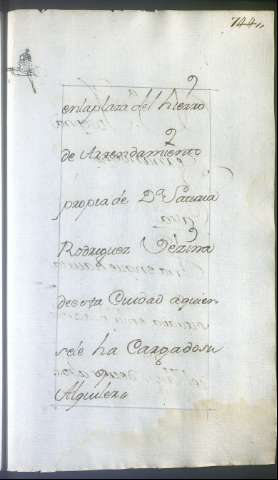 744,,
en la plaza del hierro
de Arrendamiento
propia de Dª
Rodriguez Vézina
de esta Ciudad a quien
se le ha Cargado su
Alquilero